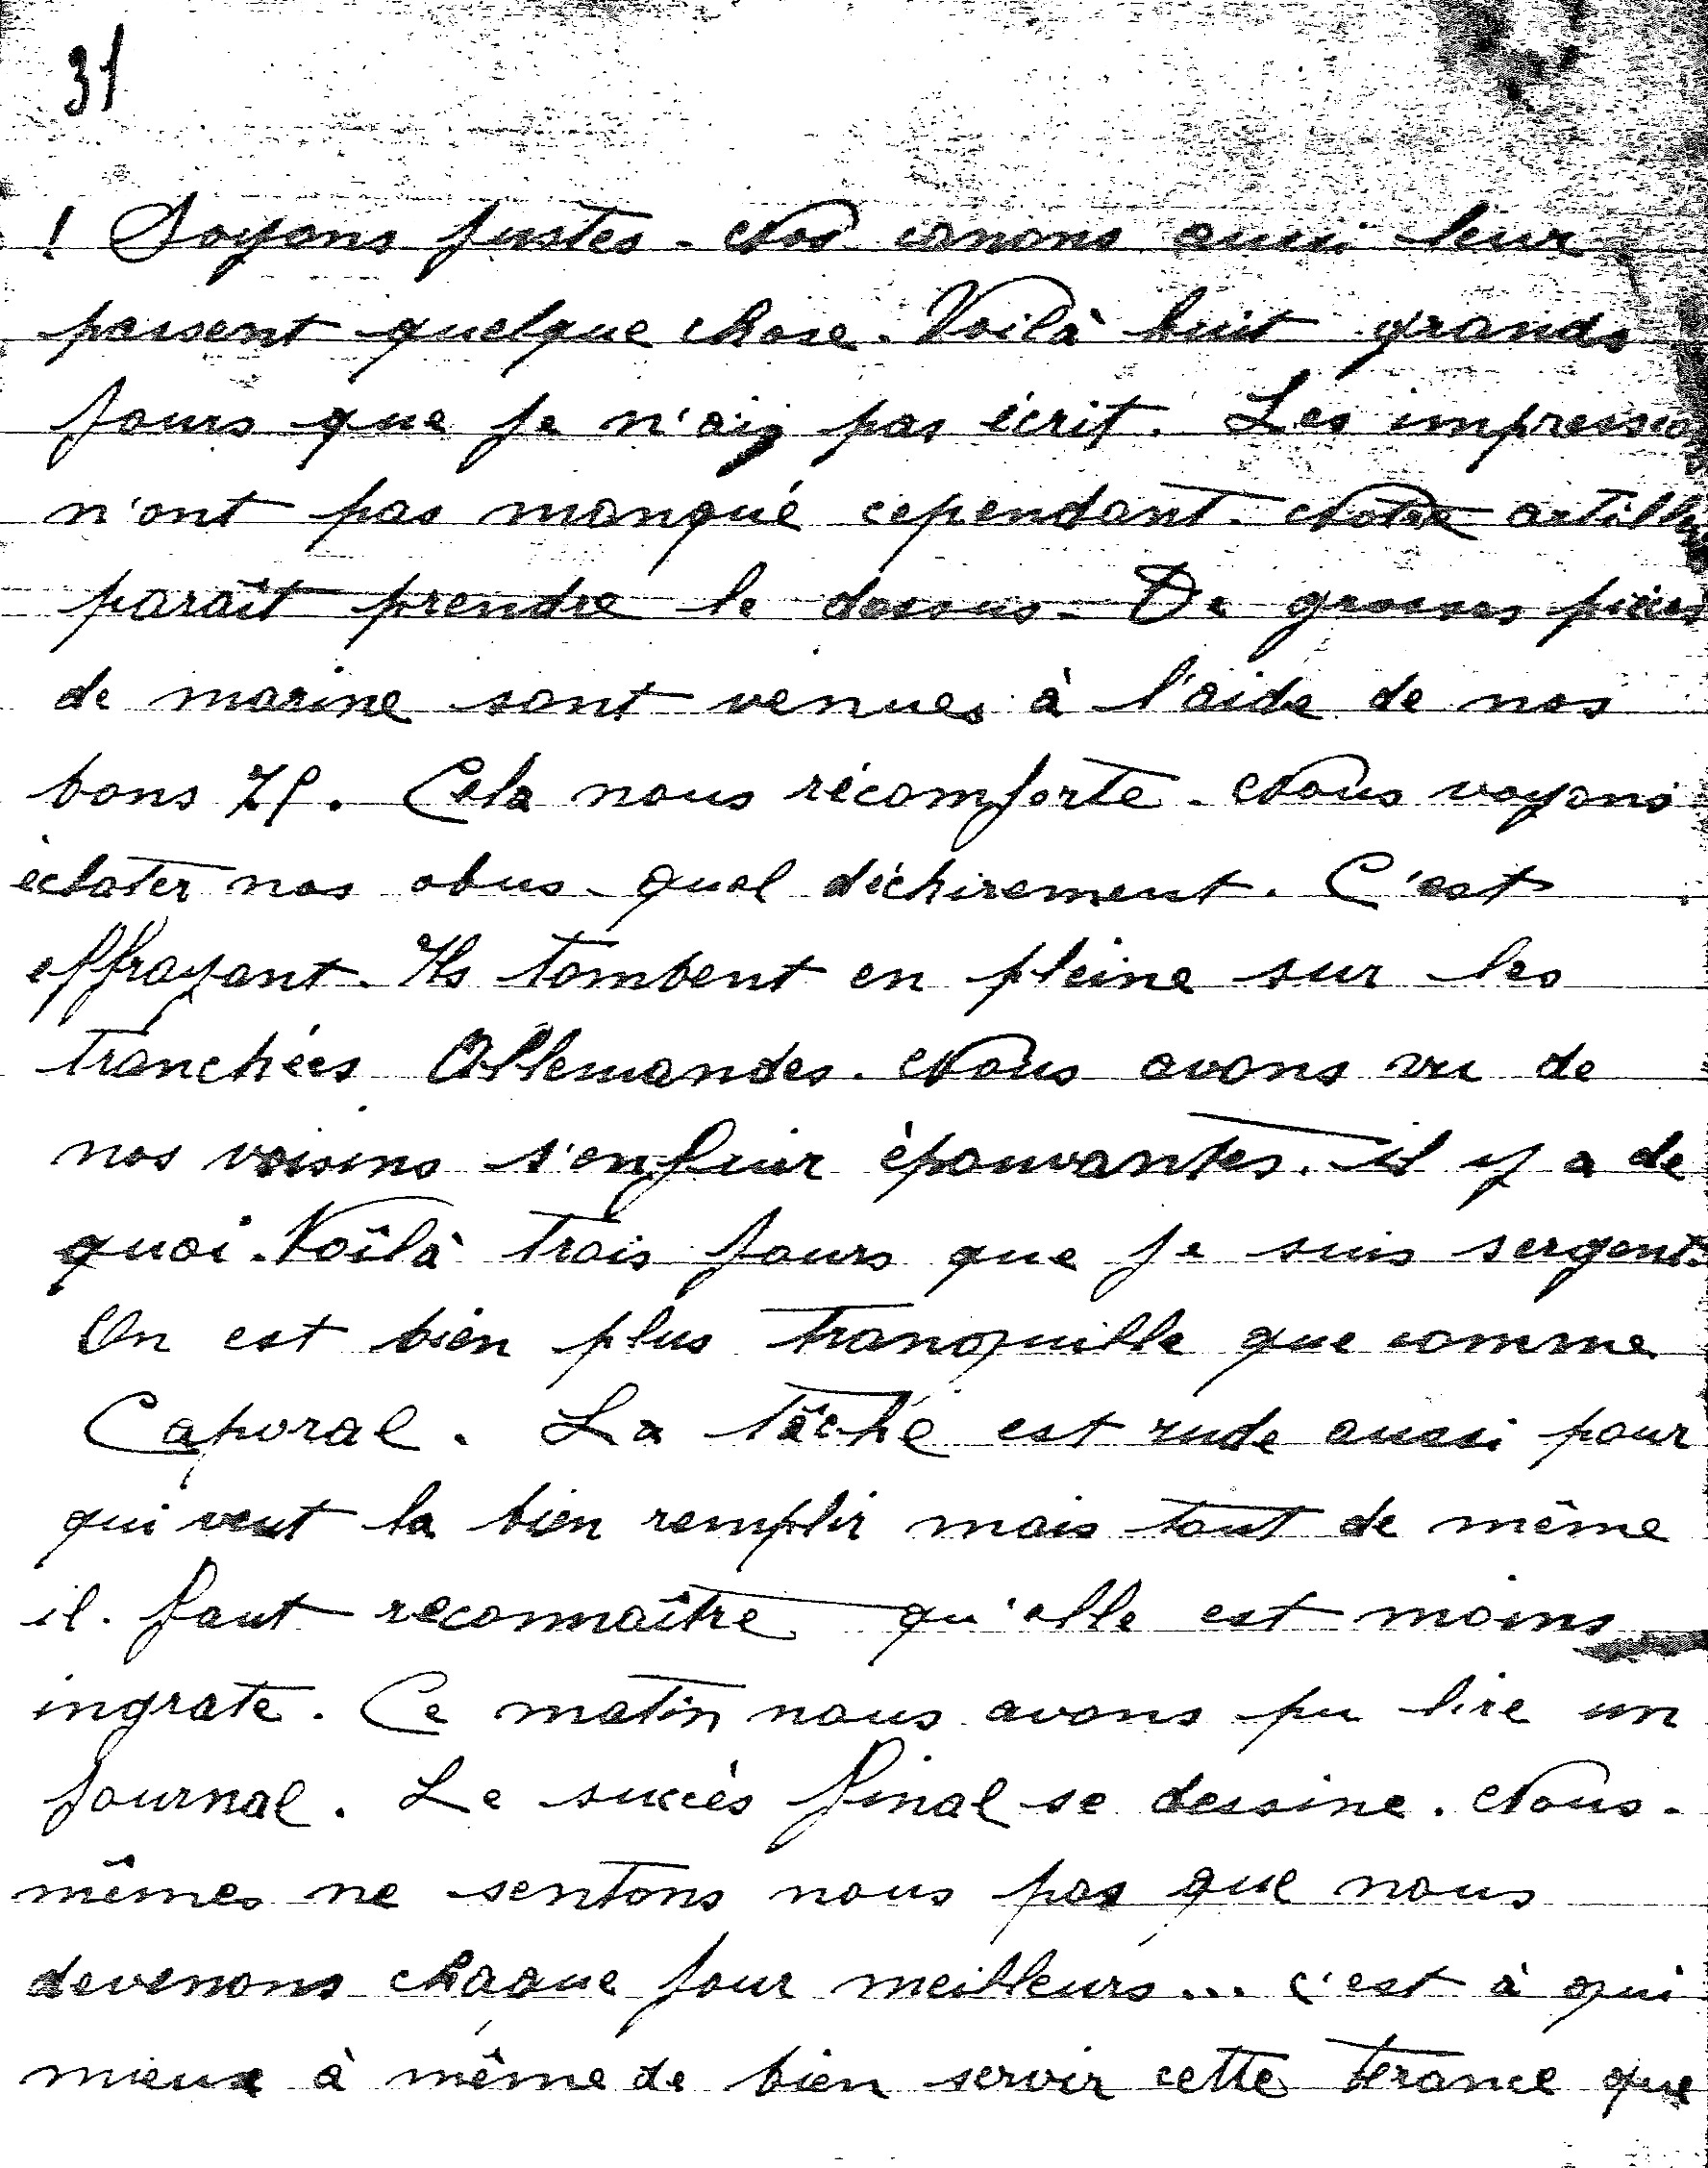 31
! Soyons justes. Nos canons aussi leur
passent quelque chose. Voilà huit grands
jours que je n'ai pas écrit. Les impression
n'ont pas manqué cependant. Notre artille
paraît prendre le dessus. De grosses pièces
de marine sont venues à l'aide de nos
bons 75. Cela nous récomforte. Nous voyons
éclater nos obus quel déchirement. C'est
effrayant. Ils tombent en pleine sur les
tranchées Allemandes. Nous avons vu de
nos voisins s'enfuir épouvantes. il y a de
quoi. Voîlà trois jours que je suis sergent.
On est bien plus tranquille que comme
Caporal. La tâche est rude aussi pour
qui veut la bien remplir mais tout de même
il faut reconnaître qu'elle est moins
ingrate. Ce matin nous avons pu lire un
journal. Le succès final se dessine. Nous-
mêmes ne sentons nous pas que nous
devenons chaque jour meilleurs... c'est à qui
mieux à même de bien servir cette France que